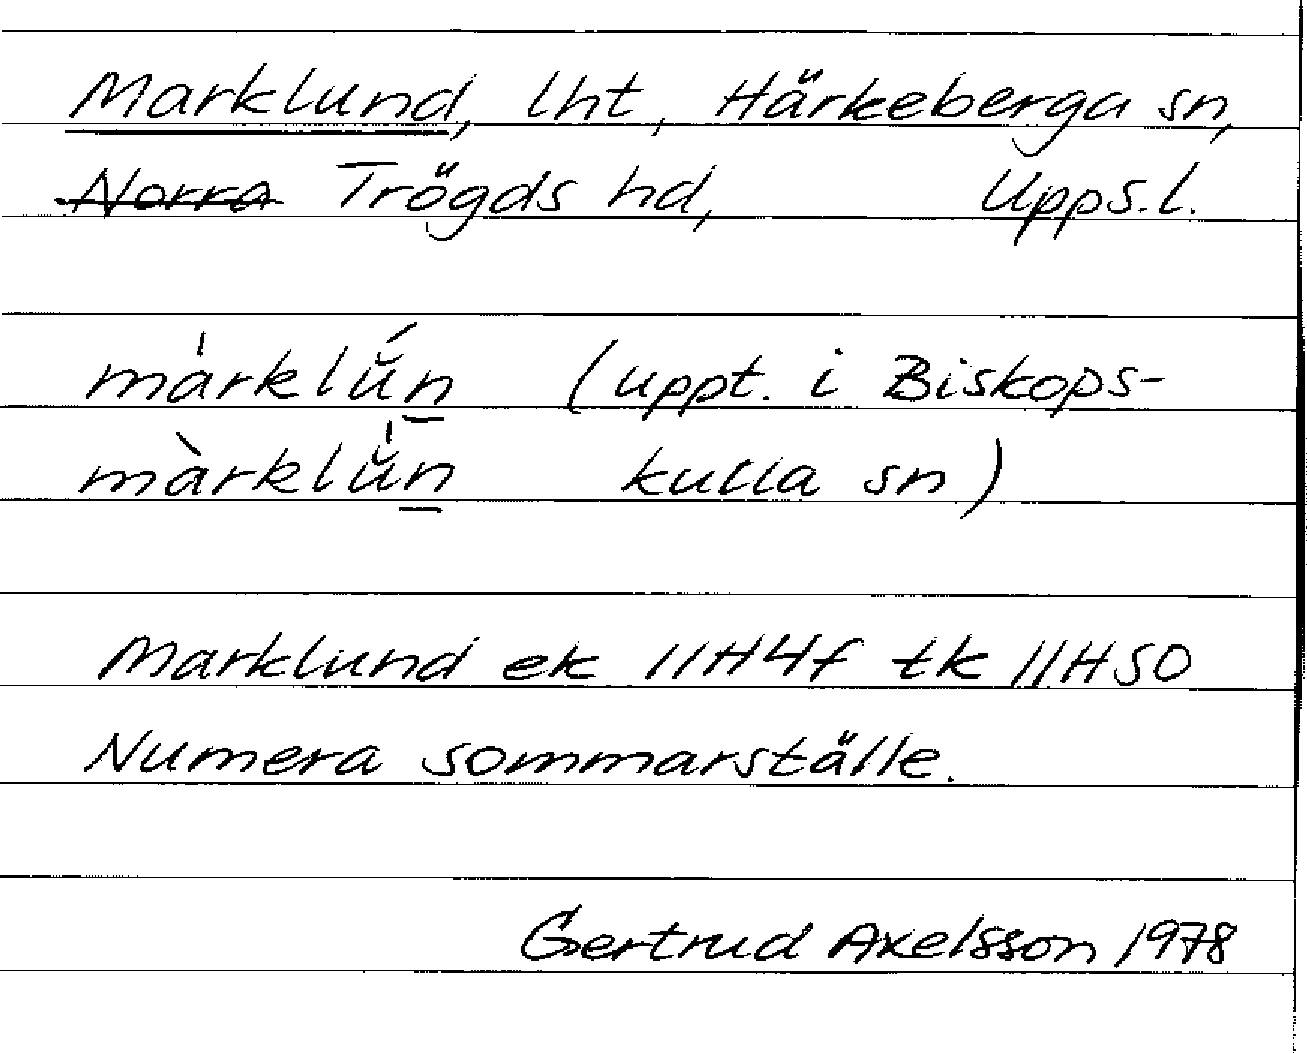 Marklund, lht, Härkeberga sn,
Norra Trögds hd, Upps.l.
màrklǔ́n (uppt. i Biskops-
màrklǔ̀n kulla sn)
Marklund ek 11H4f tk 11HSO
Numera sommarställe.
Gertrud Axelsson 1978